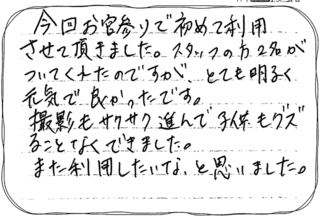 今回お宮参りで初めて利用
させて頂きました。スタッフの方2名が
ついてくれたのですが、とても明るく
元気で良かったです。
撮影もサクサク進んで子供もグズ
ることなくできました。
また利用したいな、と思いました。